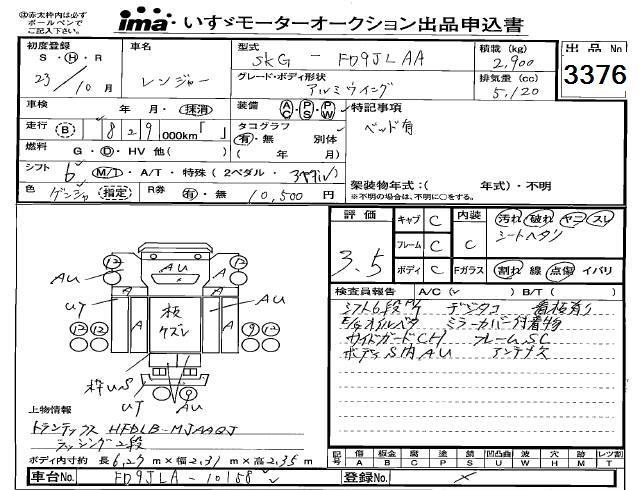 ㊟赤太枠内は必ず
ボールペンで
ご記入下さい。
ima いすゞモーターオークション出品申込書
初度登録
S・H・R
23/10月
車名
レンジャー
型式
SKG-FD9JLAA
グレード・ボディ形状
アルミウイング
積載(kg)
2,900
排気量(cc)
5,120
出品No
3376
車検 年 月・抹消
装備 AC・PS・PW
特記事項
ベッド有
走行 B 829 000km「 」
タコグラフ
有・無 別体
( 年 月)
燃料 G・D・HV 他( )
シフト 6 M/T・A/T・特殊(2ペダル・3ペダル)
色 ゲンシャ 指定 R券 有・無 10,500円
架装物年式:( 年式)・不明
※不明の場合は、不明に○をする。
評価
3.5
キャブ C
フレーム C
ボディ C
内装 C
Fガラス
汚れ 破れ ヤニ スレ
シートヘタリ
割れ 線 点傷 イバリ
検査員報告 A/C( ) B/T( )
シフト6段 デジタコ 看板有り
E/gオイルベタ ミラーカバー付着物
サイドガードCH フレームSC
ボディS内AU アンテナ欠
12 12
AU AU AU
UT
A A A A
板
ケズレ
12 12 9 12
枠US
UT AU
9
上物情報
トランテックス HFDLB-MJAAQJ
ラッシング2段
ボディ内寸約 長6.27m×幅2.31m×高2.35m
記号 傷A 板金B 腐C 塗P 錆S 凹凸曲U 波W 穴H 跡M レツ割T
車台No. FD9JLA-10158
登録No.